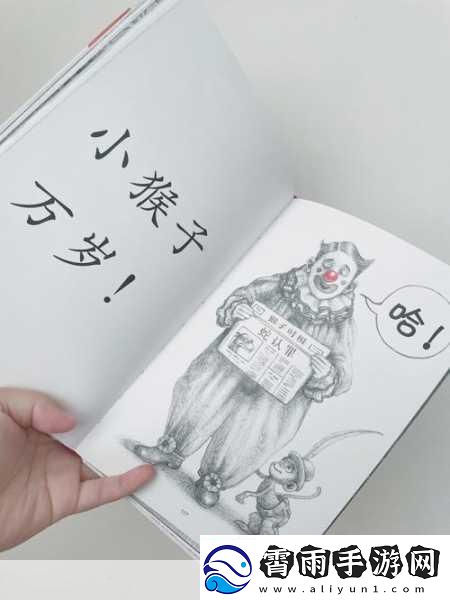 小猴子
万岁！
哈！
猴子时报
蛇认罪
霄雨手游网
www.aliyun1.com